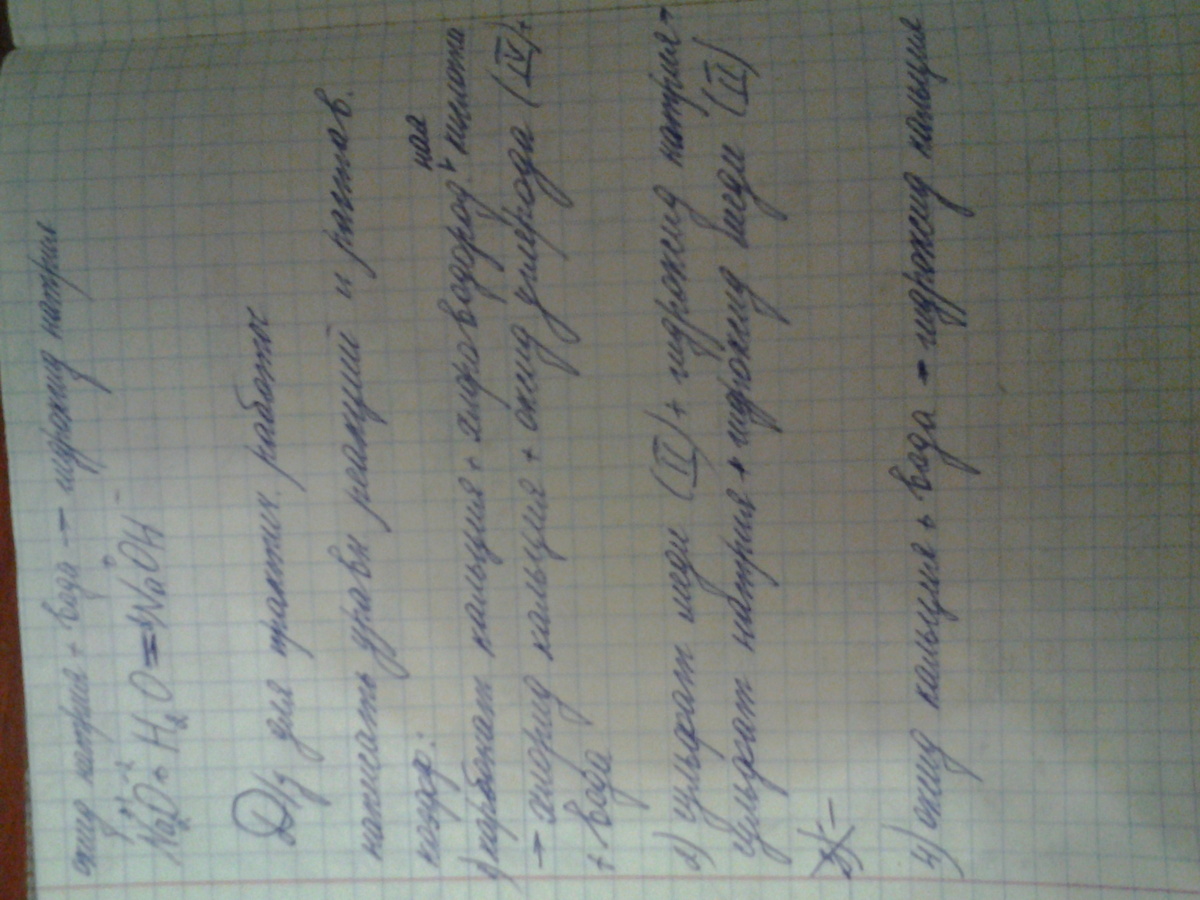 оксид натрия + вода — гидроксид натрия
Na₂⁺¹O⁻² + H₂O = 2NaOH
Д/з для практич. работы
написать уравн реакций и расстав.
коэфф.:
1) карбонат кальция + хлороводород. + ная кислота
→ хлорид кальция + оксид углерода (IV) +
+ вода
2) сульфат меди (II) + гидроксид натрия →
сульфат натрия + гидроксид меди (II)
3) –
4) оксид кальция + вода → гидроксид кальция